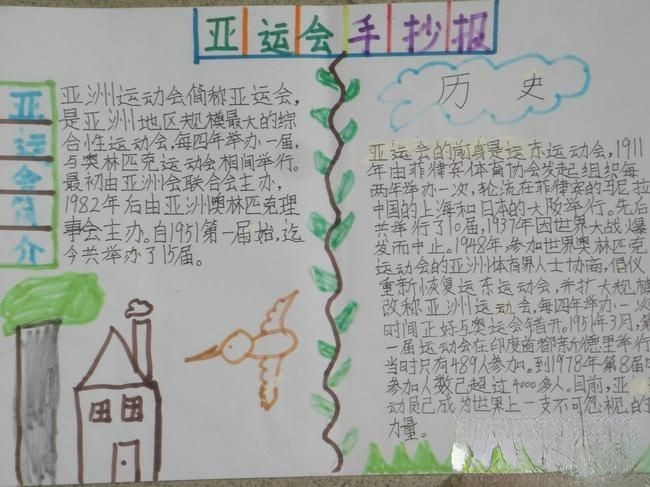 亚运会手抄报
亚运会简介
亚洲运动会简称亚运会,
是亚洲地区规模最大的综
合性运动会,每四年举办一届,
与奥林匹克运动会相间举行。
最初由亚洲会联合会主办,
1982年后由亚洲奥林匹克理
事会主办。自1951第一届始,迄
今共举办了15届。
历史
亚运会的前身是远东运动会,1911
年由菲律宾体育协会发起组织每
两年举办一次,轮流在菲律宾的马尼拉
中国的上海和日本的大阪举行。先后
共举行了10届,1937年因世界大战爆
发而中止。1948年,参加世界奥林匹克
运动会的亚洲体育界人士协商,倡仪
重新恢复远东运动会,并扩大规模
改称亚洲运动会,每四年举办一次
时间正好与奥运会错开。1951年3月,第
一届运动会在印度首都新德里举行
当时只有489人参加。到1978年第8届时
参加人数已超过4000多人。目前,亚
动员已成为世界上一支不可忽视的
力量。